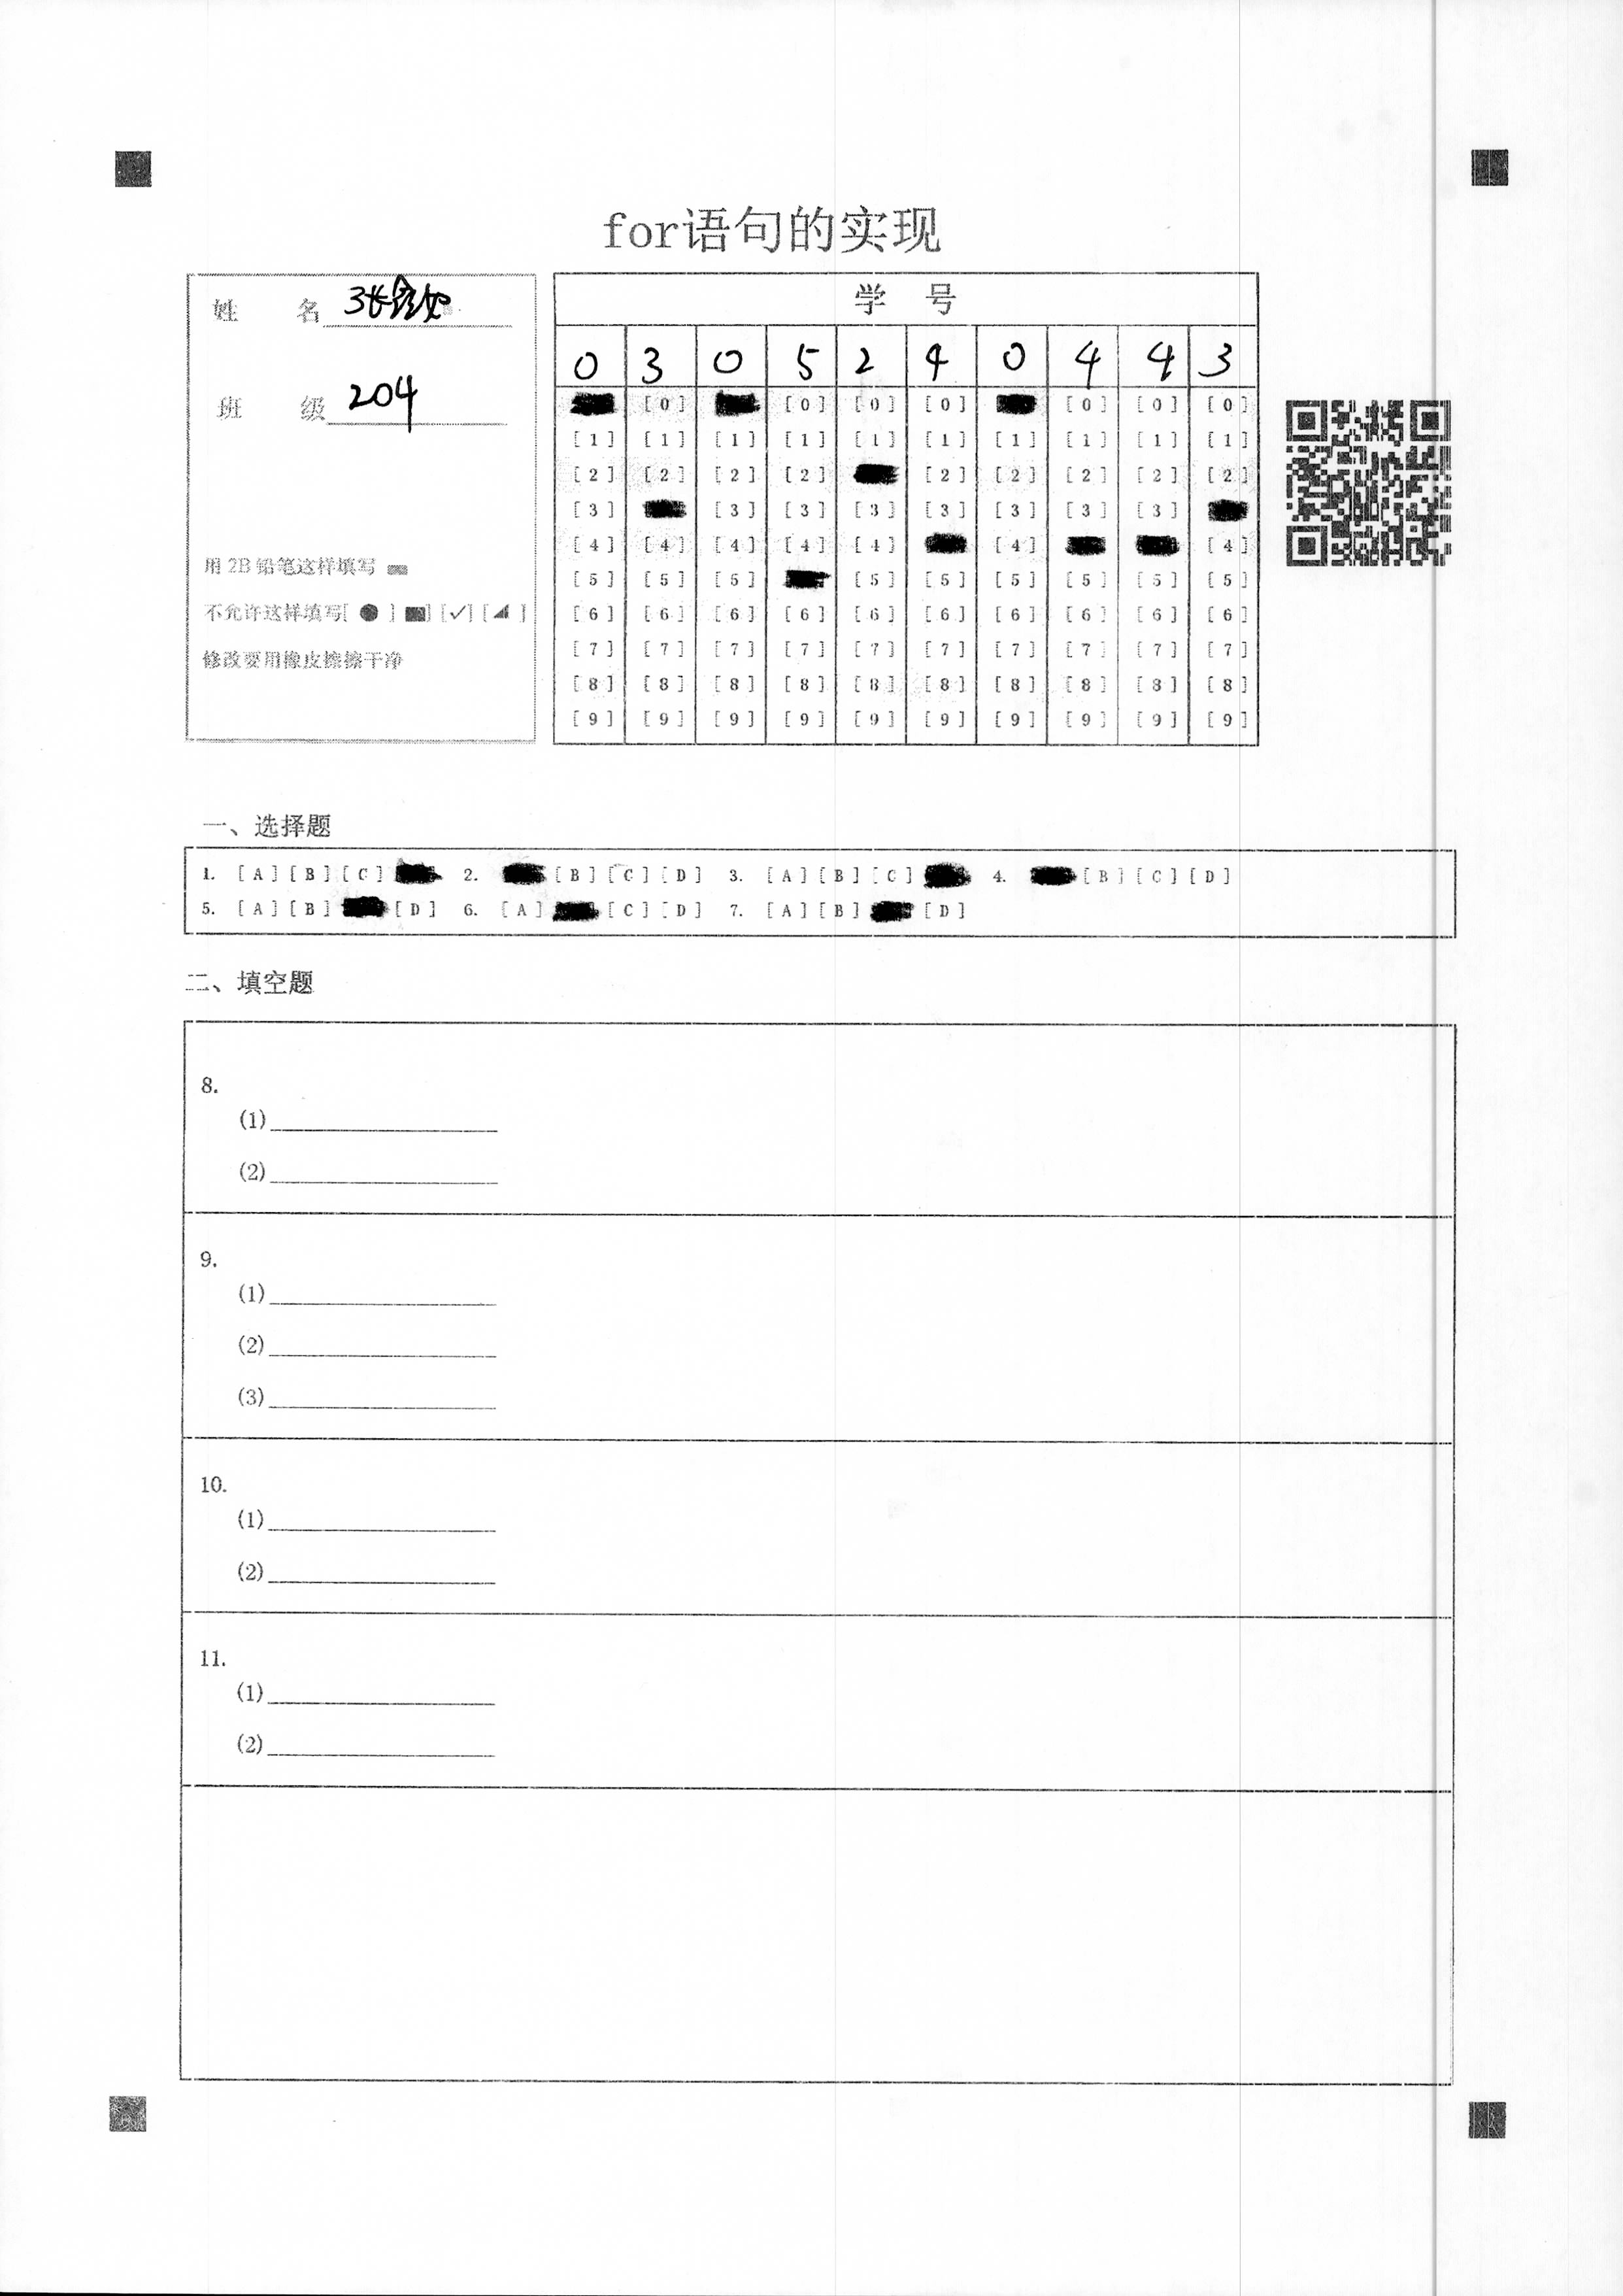 for语句的实现
姓 名 张
班 级 204
用 2B 铅笔这样填写
不允许这样填写[ ● ] [■] [✓] [◢ ]
修改要用橡皮擦擦干净
学 号
0 3 0 5 2 4 0 4 4 3
[0] [0] [0] [0] [0] [0] [0]
[1] [1] [1] [1] [1] [1] [1] [1] [1] [1]
[2] [2] [2] [2] [2] [2] [2] [2] [2]
[3] [3] [3] [3] [3] [3] [3] [3]
[4] [4] [4] [4] [4] [4] [4]
[5] [5] [5] [5] [5] [5] [5] [5] [5]
[6] [6] [6] [6] [6] [6] [6] [6] [6] [6]
[7] [7] [7] [7] [7] [7] [7] [7] [7] [7]
[8] [8] [8] [8] [8] [8] [8] [8] [8] [8]
[9] [9] [9] [9] [9] [9] [9] [9] [9] [9]
一、选择题
1. [A] [B] [C] 2. [B] [C] [D] 3. [A] [B] [C] 4. [B] [C] [D]
5. [A] [B] [D] 6. [A] [C] [D] 7. [A] [B] [D]
二、填空题
8.
(1)
(2)
9.
(1)
(2)
(3)
10.
(1)
(2)
11.
(1)
(2)